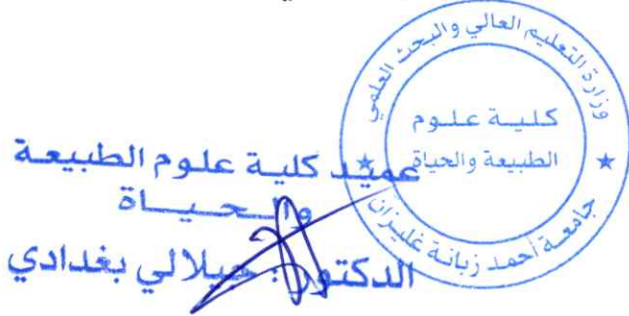 وزارة التعليم العالي والبحث العلمي
كلية علوم
الطبيعة والحياة
جامعة أحمد زبانة غليزان
عميد كلية علوم الطبيعة
والحياة
الدكتور: جيلالي بغدادي